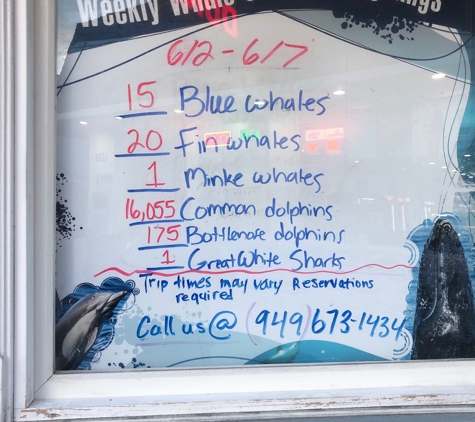 Weekly
6/2 - 6/7
15 Blue whales
20 Fin whales
1 Minke whales
16,055 Common dolphins
175 Bottlenose dolphins
1 Great White Sharks
Trip times may vary Reservations
required
Call us @ (949) 673-1434